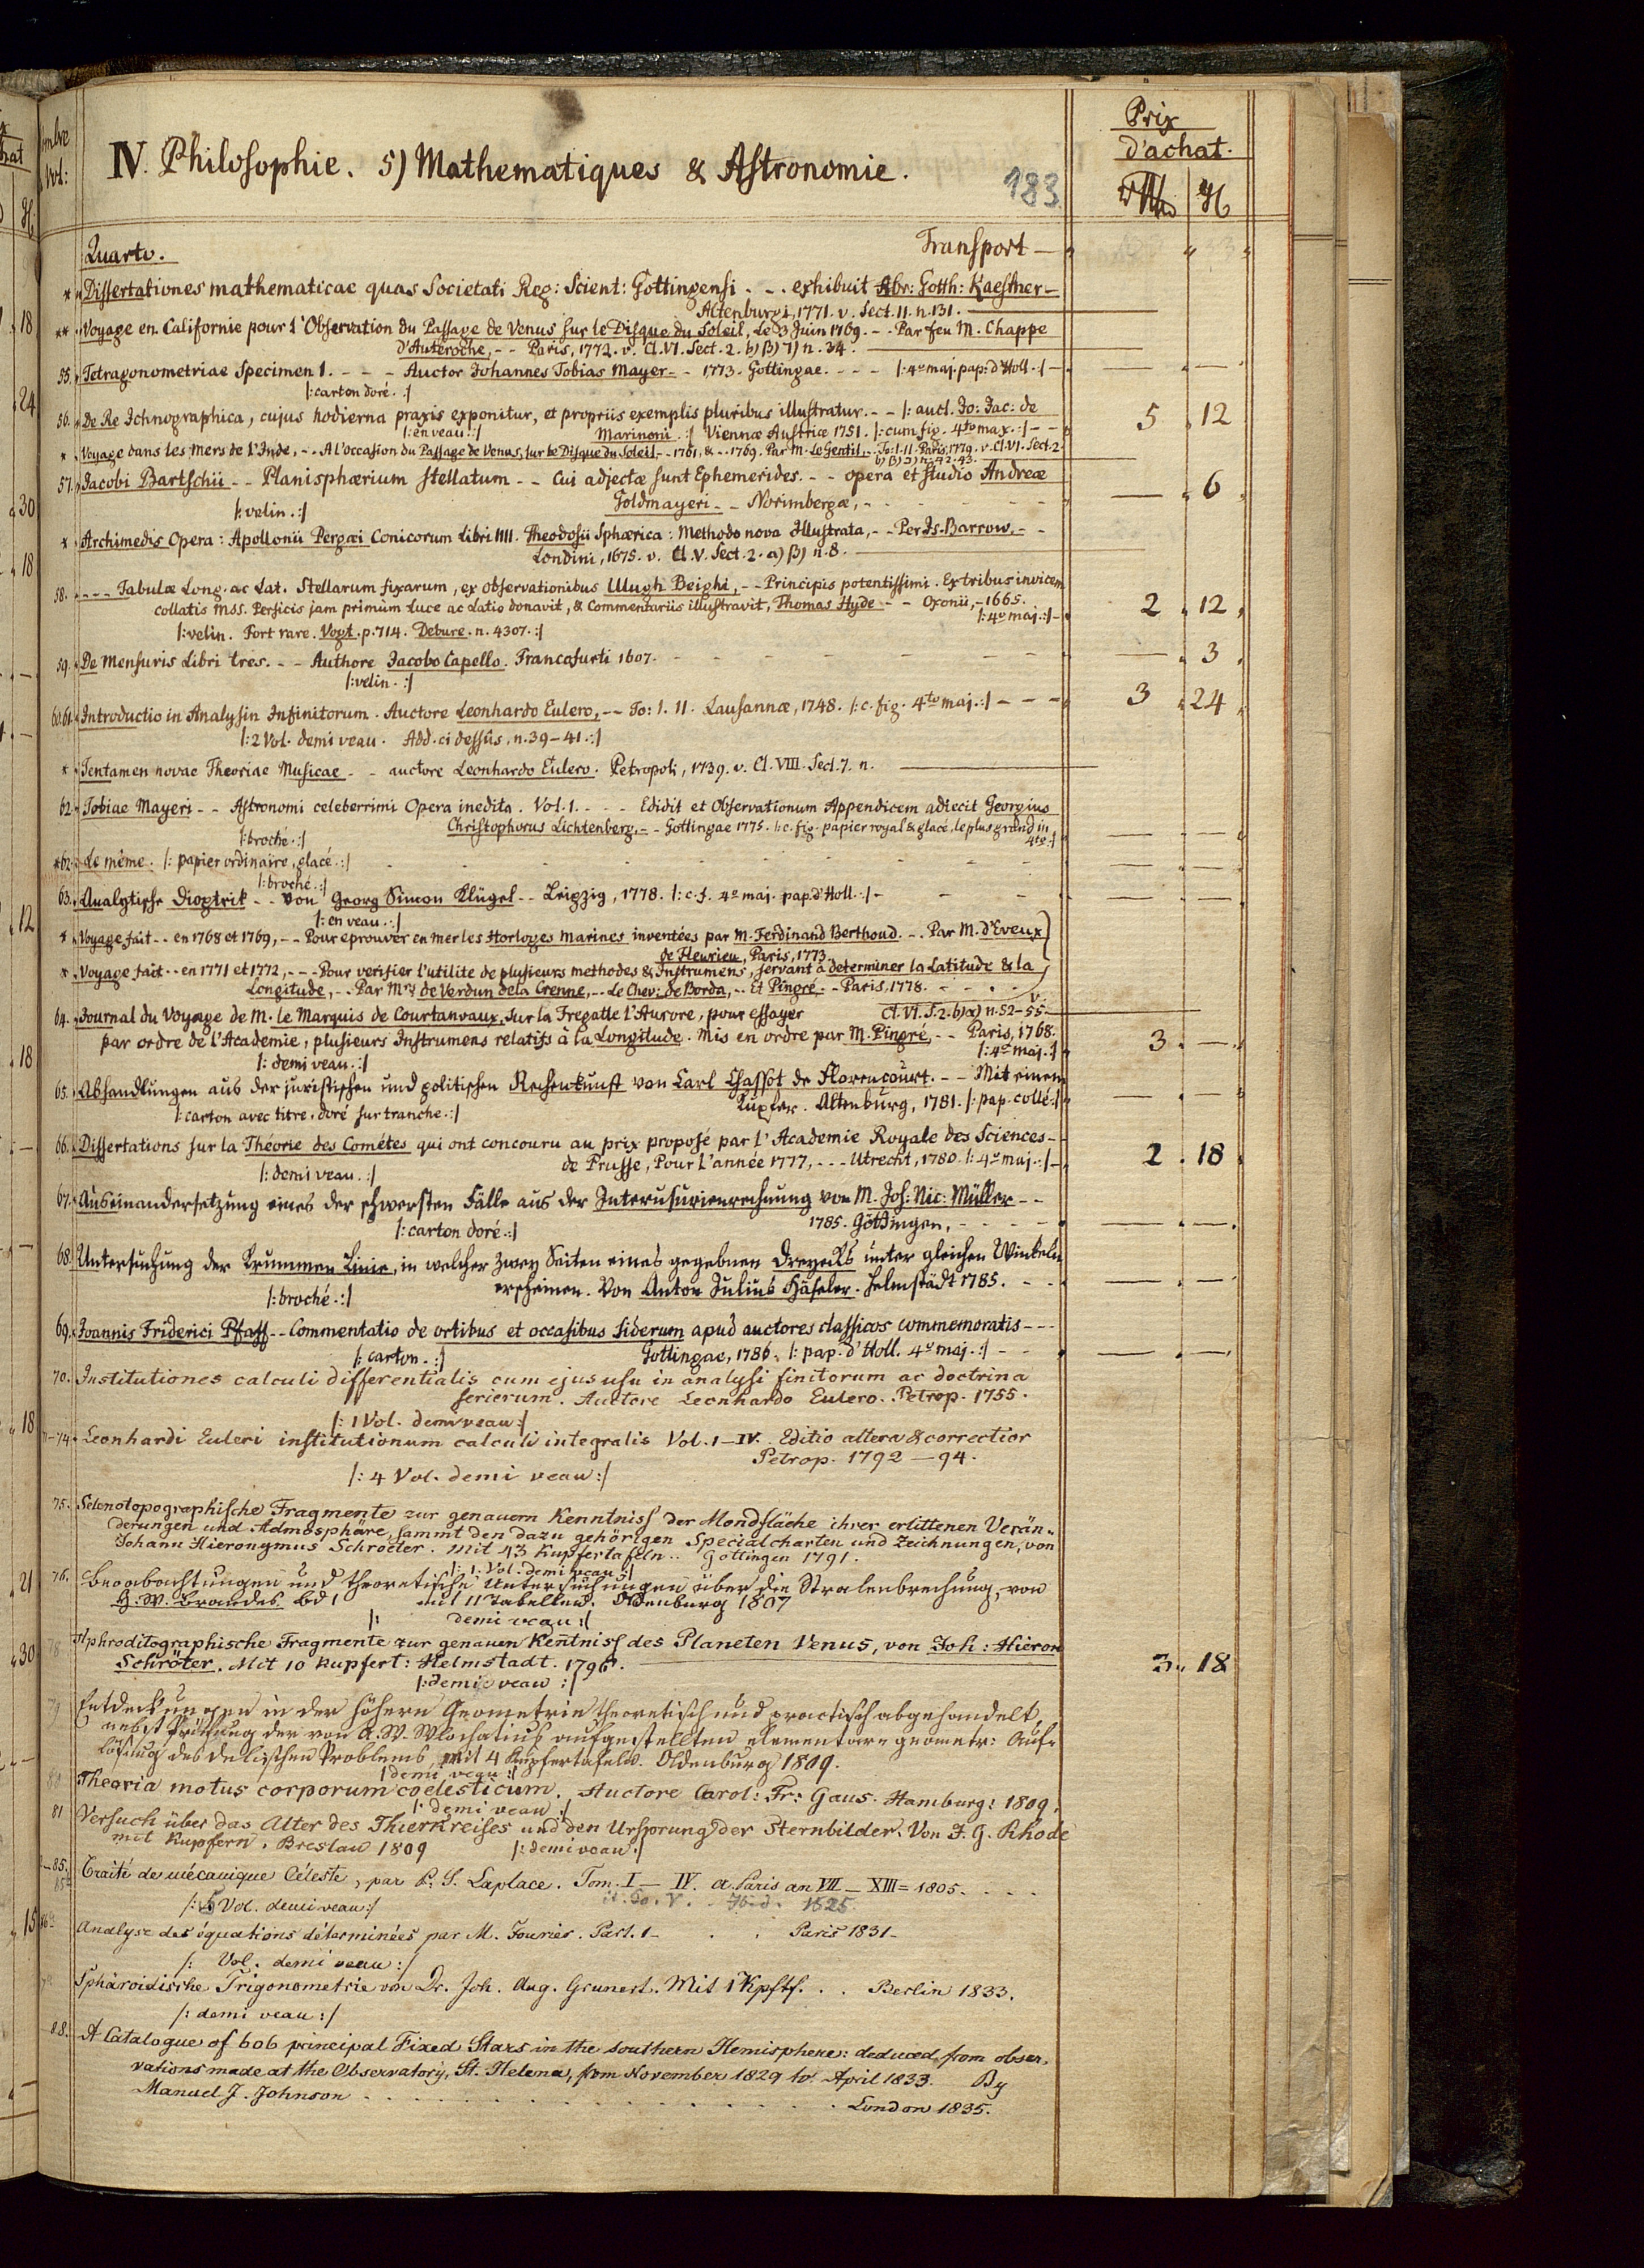 Prix
d'achat.
IV. Philosophie. 5) Mathematiques & Astronomie.
183.
Quarto. Transport —
* Dissertationes mathematicae quas Societati Reg: Scient: Gottingensi - - exhibuit Abr: Gotth: Kaestner —
Altenburgi, 1771. v. Sect. 11. n. 131.
** Voyage en Californie pour l'Observation du Passage de Venus sur le Disque du Soleil, Le 3 Juin 1769. - - Par feu M. Chappe
d'Auteroche, - - Paris, 1772. v. Cl. VI. Sect. 2. b) β) 7) n. 34.
55. Tetragonometriae Specimen 1. - - - Auctor Johannes Tobias Mayer - - 1773. Gottingae. - - - |: 4º maj. pap: d'Holl. :| — — —
|: carton doré. :|
56. De Re Ichnographica, cujus hodierna praxis exponitur, et propriis exemplis pluribus illustratur. - - |: auct. Jo: Jac: de 5 12
|: en veau. :| Marinoni. :| Viennæ Austriæ 1751. |: cum fig. 4to max. :| - -
* Voyage dans les Mers de l'Inde, - - A l'occasion du Passage de Venus, sur le Disque du Soleil, - - 1761, & - - 1769. Par M. Le Gentil, - - To: 1. 11. Paris, 1779. v. Cl. VI. Sect. 2
b) β) 2) n. 42. 43.
57. Jacobi Bartschii - - Planisphærium stellatum - - Cui adjectæ sunt Ephemerides. - - opera et studio Andreæ
|: velin. :| Goldmayeri - - Norimbergæ, - - — 6
* Archimedis Opera: Apollonii Pergæi Conicorum Libri IIII. Theodosii Sphærica: Methodo nova Illustrata, - - Per Is. Barrow, - -
Londini, 1675. v. Cl. V. Sect. 2. a) β) n. 8.
58. - - - Tabulæ Long. ac Lat. Stellarum fixarum, ex observationibus Ulugh Beighi, - - Principis potentissimi. Ex tribus invicem
collatis Mss. Persicis jam primùm Luce ac Latio donavit, & Commentariis illustravit, Thomas Hyde - - Oxonii, - 1665. 2 12
|: 4º maj. :|
|: velin. Fort rare. Vogt. p. 714. Debure. n. 4307. :|
59. De Mensuris Libri tres. - - Authore Jacobo Capello. Francofurti 1607. — 3
|: velin. :|
60.61. Introductio in Analysin Infinitorum. Auctore Leonhardo Eulero, - - To: 1. 11. Lausannæ, 1748. |: c. fig. 4to maj. :| - - - 3 24
|: 2 Vol. demi veau. Add. ci dessûs, n. 39-41. :|
* Tentamen novae Theoriae Musicae - - auctore Leonhardo Eulero. Petropoli, 1739. v. Cl. VIII. Sect. 7. n.
62. Tobiae Mayeri - - Astronomi celeberrimi Opera inedita. Vol. 1. - - - Edidit et Observationum Appendicem adiecit Georgius
Christophorus Lichtenberg, - - Gottingae 1775. |: c. fig. papier royal & glacé, le plus grand in
|: broché. :| 4to :| — —
*62. Le même. |: papier ordinaire, glacé. :| — —
|: broché. :|
63. Analytische Dioptrik - - von Georg Simon Klügel - - Leipzig, 1778. |: c. f. 4º maj. pap. d'Holl. :| — —
|: en veau. :|
* Voyage fait - - en 1768 et 1769, - - Pour eprouver en mer les Horloges Marines inventées par M. Ferdinand Berthoud. - - Par M. d'Eveux
de Fleurieu, Paris, 1773
* Voyage fait - - en 1771 et 1772, - - - Pour verifier l'utilite de plusieurs methodes & Instrumens, servant à determiner la Latitude & la
Longitude, - - Par Mrs de Verdun de la Crenne, - - Le Chev: de Borda, - - Et Pingré - - Paris, 1778. - -
v. Cl. VI. S. 2. b) α) n. 52-55.
64. Journal du Voyage de M. le Marquis de Courtanvaux, Sur la Fregatte l'Aurore, pour essayer
par ordre de l'Academie, plusieurs Instrumens relatifs à la Longitude. Mis en ordre par M. Pingré, - - Paris, 1768. 3 —
|: demi veau. :| |: 4º maj. :|
65. Abhandlungen aus der juristischen und politischen Rechenkunst von Carl Chassot de Florencourt. - - Mit einem
Kupfer. Altenburg, 1781. |: pap. collé :| — —
|: carton avec titre, doré sur tranche. :|
66. Dissertations sur la Théorie des Cométes qui ont concouru au prix proposé par l'Academie Royale des Sciences -
|: demi veau. :| de Prusse, Pour l'année 1777, - - - Utrecht, 1780. |: 4º maj. :| 2 18
67. Auseinandersetzung eines der schwersten Fälle aus der Interusurienrechnung von M. Joh: Nic: Müller - -
|: carton doré. :| 1785. Göttingen, - - — —
68. Untersuchung der krummen Linie, in welcher zwey Seiten eines gegebnen Dreyecks unter gleichen Winkeln
erscheinen. Von Anton Julius Häseler. Helmstädt 1785. - - — —
|: broché. :|
69. Joannis Friderici Pfaff - - Commentatio de ortibus et occasibus siderum apud auctores classicos commemoratis - - -
|: carton. :| Gottingae, 1786. |: pap. d'Holl. 4º maj. :| - - — —
70. Institutiones calculi differentialis cum ejus usu in analysi finitorum ac doctrina
serierum. Auctore Leonhardo Eulero. Petrop. 1755.
|: 1 Vol. demi veau :|
71-74. Leonhardi Euleri institutionum calculi integralis Vol. 1-IV. Editio altera & correctior
Petrop. 1792-94.
|: 4 Vol. demi veau :|
75. Selenotopographische Fragmente zur genauern Kenntniss der Mondfläche ihrer erlittenen Verän-
derungen und Admosphäre, sammt den dazu gehörigen Specialcharten und Zeichnungen, von
Johann Hieronymus Schroeter. Mit 43 Kupfertafeln. Göttingen 1791.
|: 1. Vol. demi veau :|
76. Beobachtungen und theoretische Untersuchungen über die Stralenbrechung, von
H. W. Brandes Bd 1 mit 11 Tabellen. Oldenburg 1807
|: demi veau :|
78 Aphroditographische Fragmente zur genauen Kentniss des Planeten Venus, von Joh: Hieron
Schröter. Mit 10 Kupfert: Helmstadt. 1796. 3 18
|: demie veau :|
79 Entdeckungen in der höhern Geometrie theoretisch und practisch abgehandelt,
nebst Prüfung der von A. W. Wlochatius aufgestellten elementare geometr: Auf-
lösung des delischen Problems mit 4 Kupfertafeln. Oldenburg 1809.
|: demi veau :|
80 Theoria motus corporum coelesticum. Auctore Carol: Fr: Gaus. Hamburg: 1809.
|: demi veau :|
81 Versuch über das Alter des Thierkreises und den Ursprung der Sternbilder. Von J. G. Rhode
mit Kupfern. Breslau 1809 |: demi veau :|
-85. Traité de mécanique Céleste, par P. S. Laplace. Tom. I-IV. a Paris an VII-XIII=1805.
it. To. V. Ibid. 1825
|: 5 Vol. demi veau :|
Analyse des équations déterminées par M. Fourier. Part. 1- Paris 1831-
|: Vol. demi veau :|
Sphäroidische Trigonometrie von Dr. Joh. Aug. Grunert. Mit 1 Kpftf. Berlin 1833.
|: demi veau :|
88. A Catalogue of 606 principal Fixed Stars in the southern Hemisphere: deduced from obser-
vations made at the Observatory, St. Helena, from November 1829 to April 1833. By
Manuel J. Johnson London 1835.